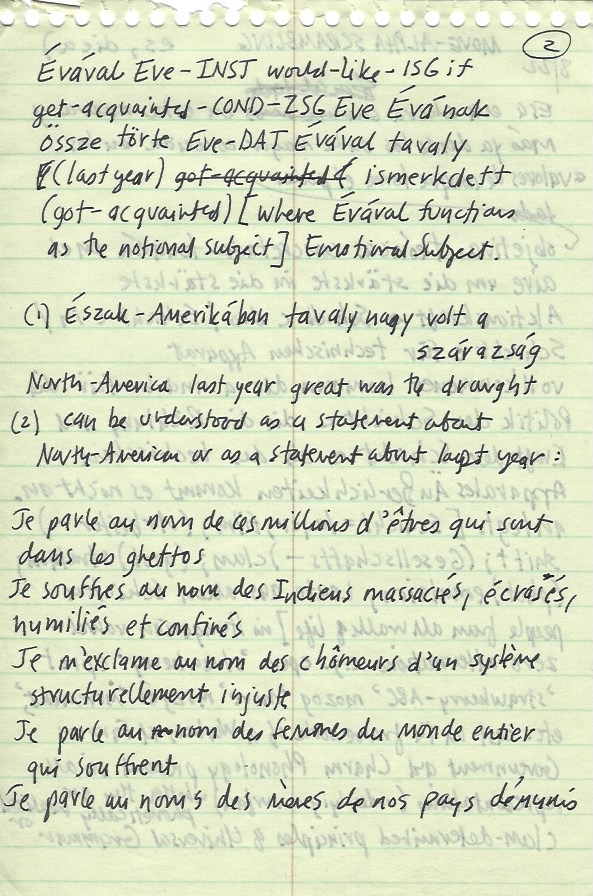 2
Évával Eve-INST would-like-1SG if
get-acquainted-COND-2SG Eve Évának
össze törte Eve-DAT Évával tavaly
(last year) got-acquainted ismerkdett
(got-acquainted) [where Évával functions
as the notional subject] Emotional Subject.
(1) Észak-Amerikában tavaly nagy volt a
szárazság
North-America last year great was the draught
(2) can be understood as a statement about
North-American or as a statement about laspt year:
Je parle au nom de ces millions d'êtres qui sont
dans les ghettos
Je souffres au nom des Indiens massacrés, écrasés,
humiliés et confinés
Je m'exclame au nom des chômeurs d'un système
structurellement injuste
Je parle au nom des femmes du monde entier
qui souffrent
Je parle au noms des mères de nos pays démunis